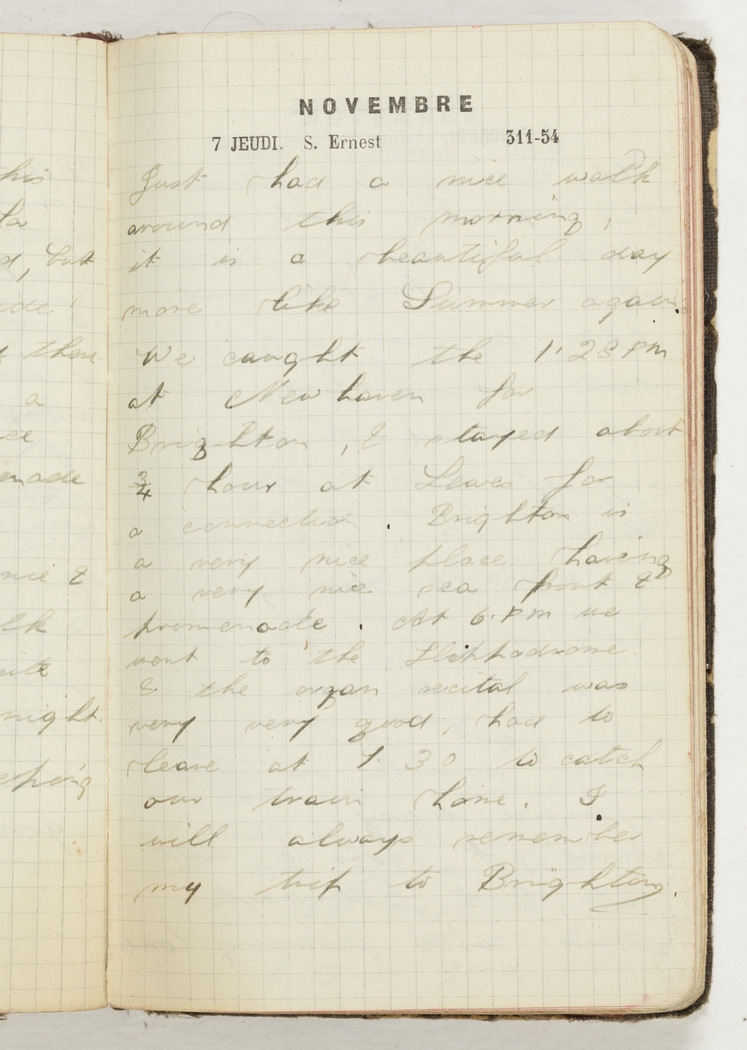 his
la
d, but
ade!
then
a
ce
enade
nice &
lk
night.
NOVEMBRE
7 JEUDI. S. Ernest 311-54
Just had a nice walk
around this morning,
it is a beautiful day
more like Summer again.
We caught the 1.28 PM
at Newhaven for
Brighton, & stayed about
3/4 hour at Lewes for
a connection. Brighton is
a very nice place having
a very nice sea front &
promenade. At 6.PM we
went to the Hippodrome
& the organ recital was
very very good, had to
leave at 7 30 to catch
our train home. I
will always remember
my trip to Brighton.